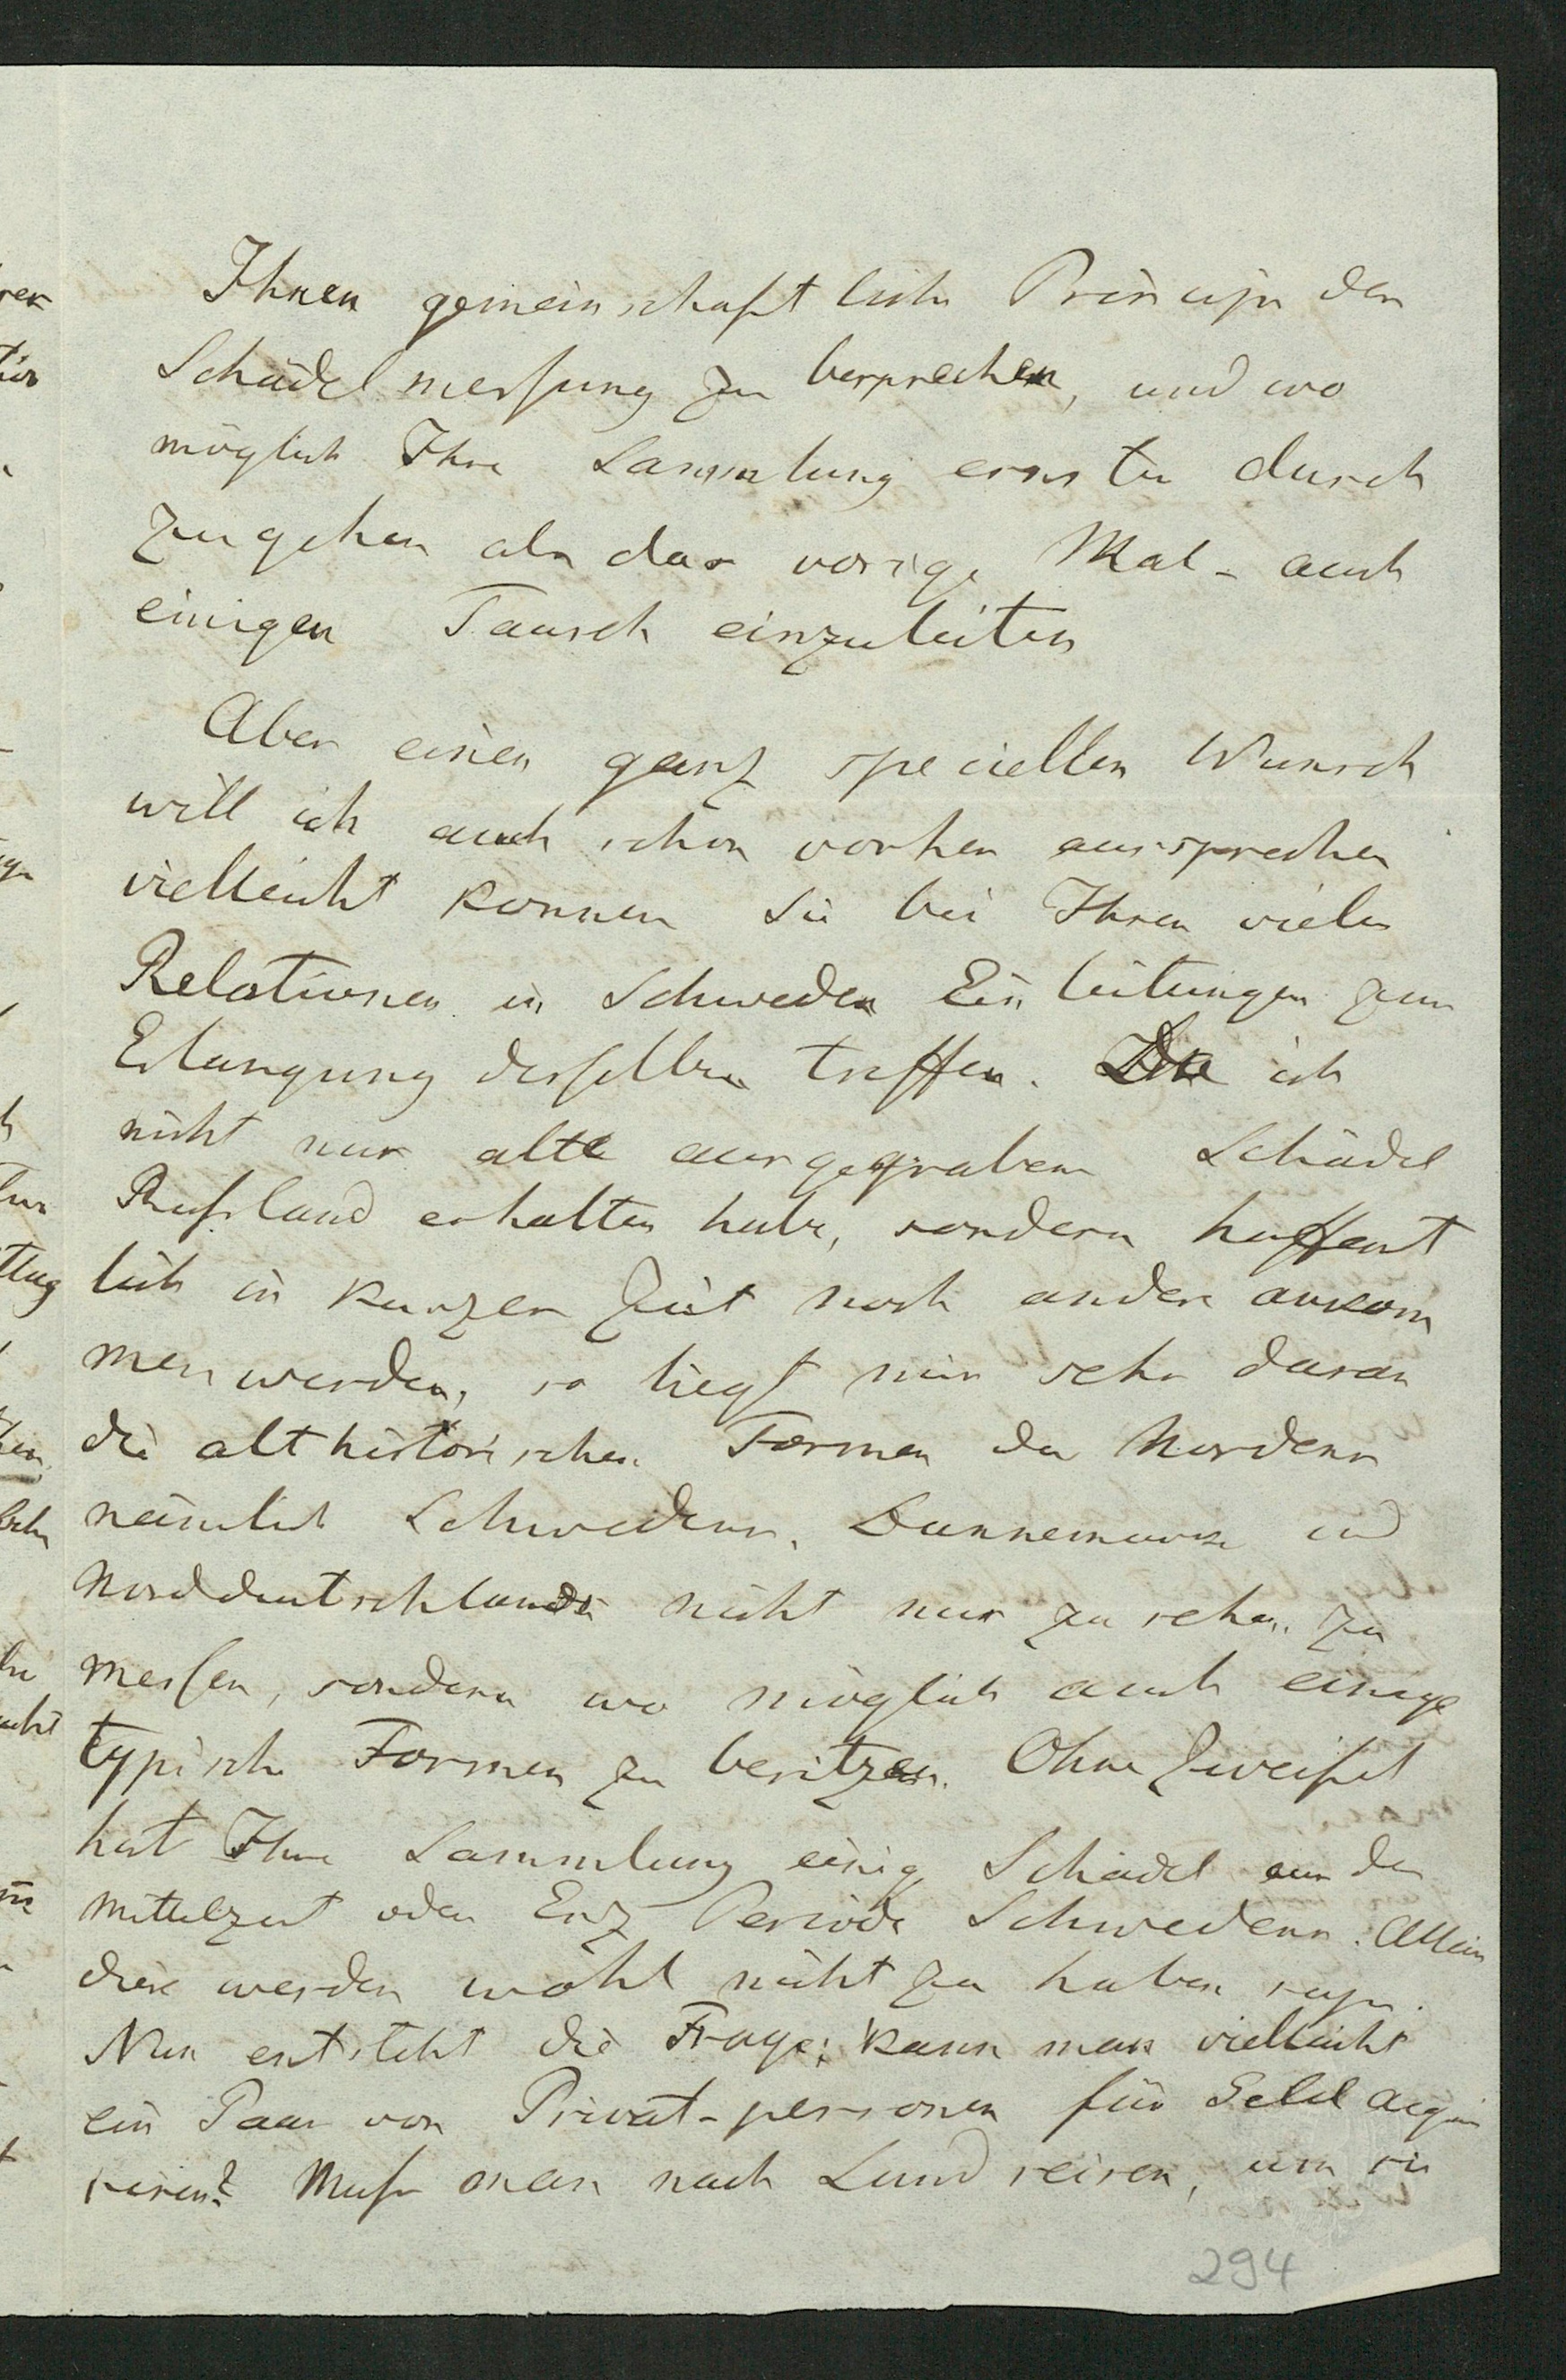 Ihnen gemeinschaftliche Principe der
Schädelmessung zu besprechen, und wo
möglich Ihre Sammlung ernster durch
zugehen als das vorige Mal - auch
einigen Tausch einzuleiten
Aber einen ganz speciellen Wunsch
will ich auch schon vorher aussprechen
vielleicht können Sie bei Ihren vielen
Relationen in Schweden Einleitungen zur
Erlangung desselben treffen. Da ich
nicht nur alte ausgegrabene Schädel
Rußland erhalten habe, sondern hoffent
lich in kurzer Zeit noch andere ankom
men werden, so liegt mir sehr daran
die althistorischen Formen des Nordens
nämlich Schwedens, Dannemarks und
Norddeutschlands nicht nur zu sehen zu
messen, sondern wo möglich auch einige
typische Formen zu besitzen. Ohne Zweifel
hat Ihre Sammlung einige Schädel aus der
Mittelzeit oder Erz Periode Schwedens. Allein
diese werden wohl nicht zu haben seyn.
Nun entsteht die Frage: kann man vielleicht
ein Paar von Privat-personen für Geld acqui
riren? Muß man nach Lund reisen, um sie
294